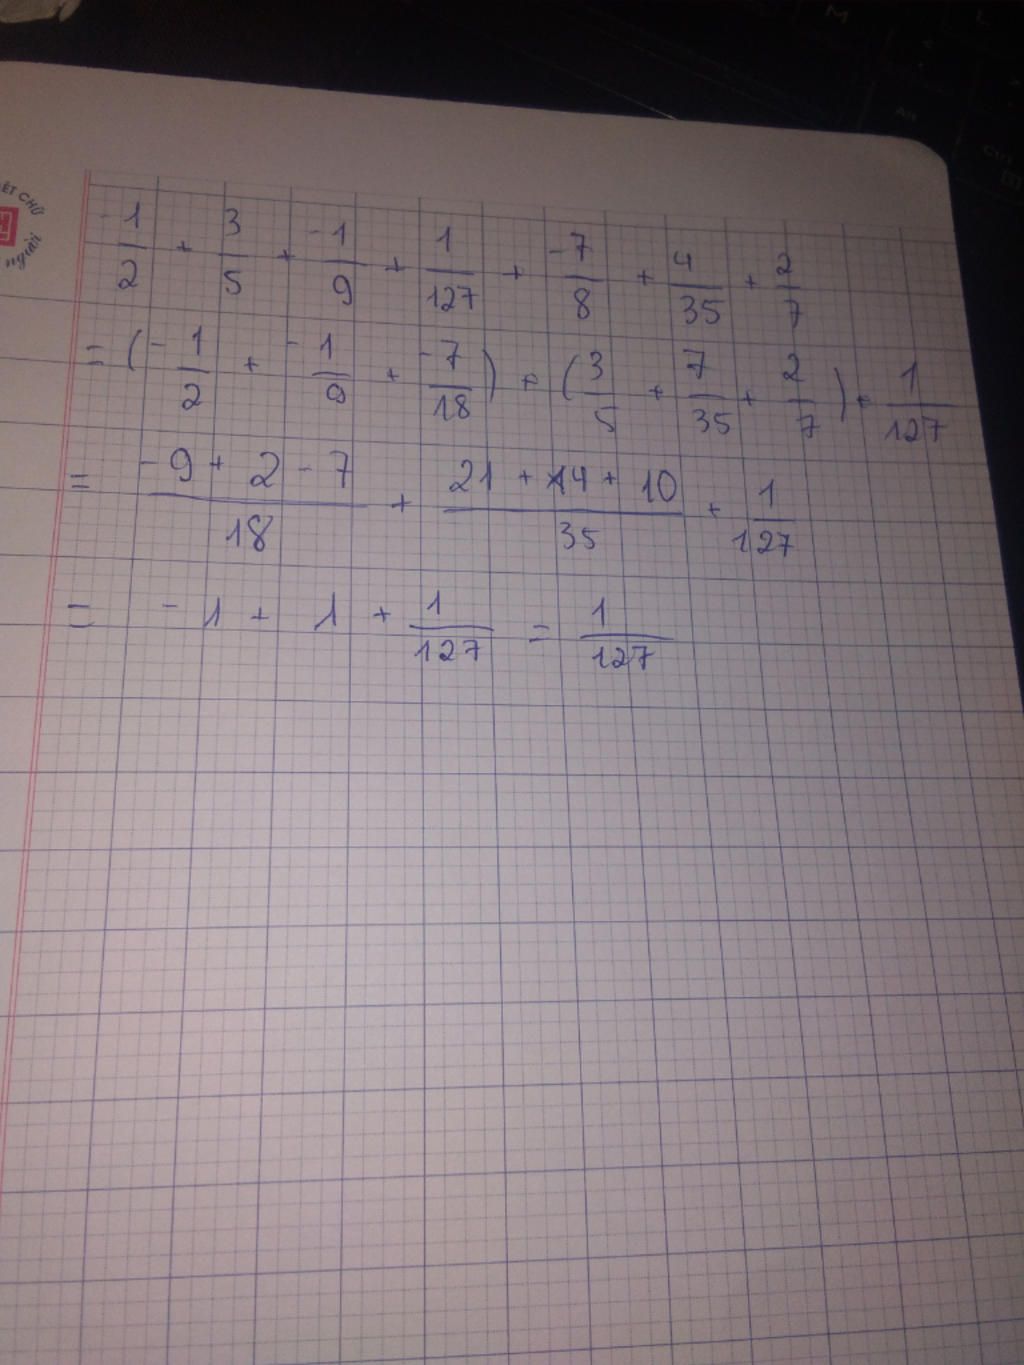 ẾT CHỮ
người
-1/2 + 3/5 + -1/9 + 1/127 + -7/8 + 4/35 + 2/7
= (-1/2 + -1/9 + -7/18) + (3/5 + 7/35 + 2/7) + 1/127
= -9 + 2 - 7/18 + 21 + 14 + 10/35 + 1/127
= -1 + 1 + 1/127 = 1/127